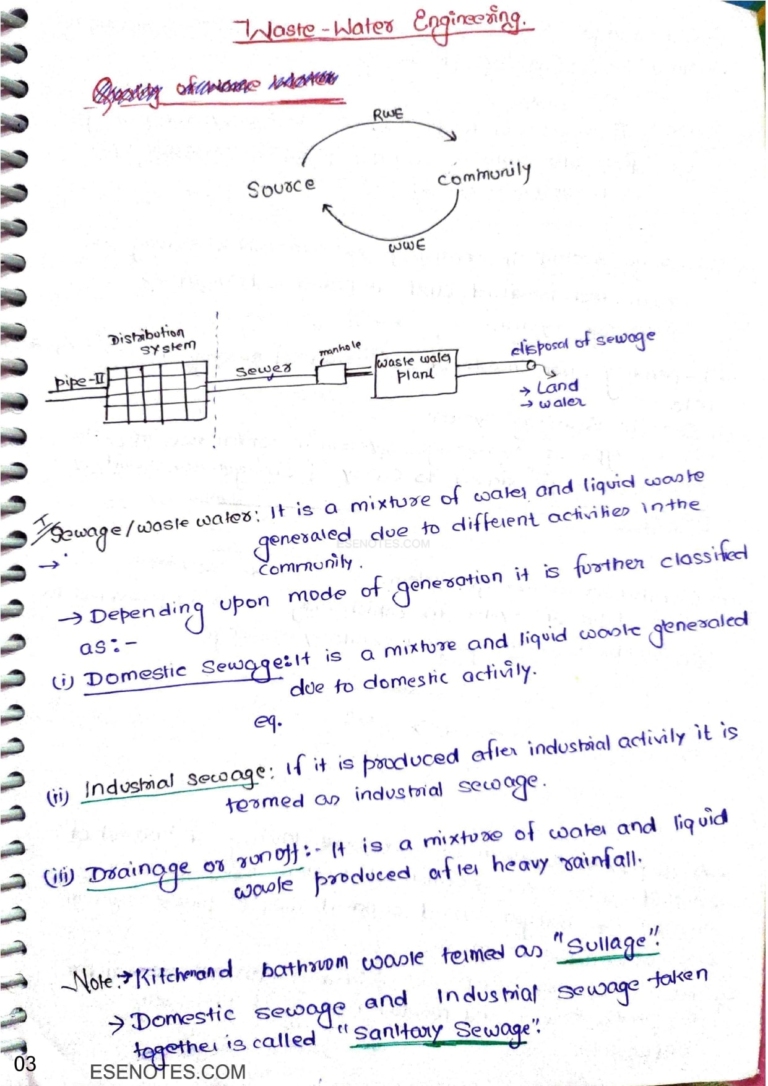 Waste-Water Engineering.
RWE
Source
Community
WWE
Distribution
system
pipe-II
sewer
manhole
waste water
plant
disposal of sewage
→ Land
→ water
I Sewage/waste water: It is a mixture of water and liquid waste
→ generated due to different activities in the
community.
ESENOTES.COM
→ Depending upon mode of generation it is further classified
as:-
(i) Domestic Sewage: It is a mixture and liquid waste generated
due to domestic activity.
eq.
(ii) Industrial sewage: If it is produced after industrial activity it is
termed as industrial sewage.
(iii) Drainage or runoff:- It is a mixture of water and liquid
waste produced after heavy rainfall.
Note:→ Kitchen and bathroom waste termed as "Sullage".
→ Domestic sewage and Industrial sewage taken
together is called "Sanitary Sewage".
03
ESENOTES.COM